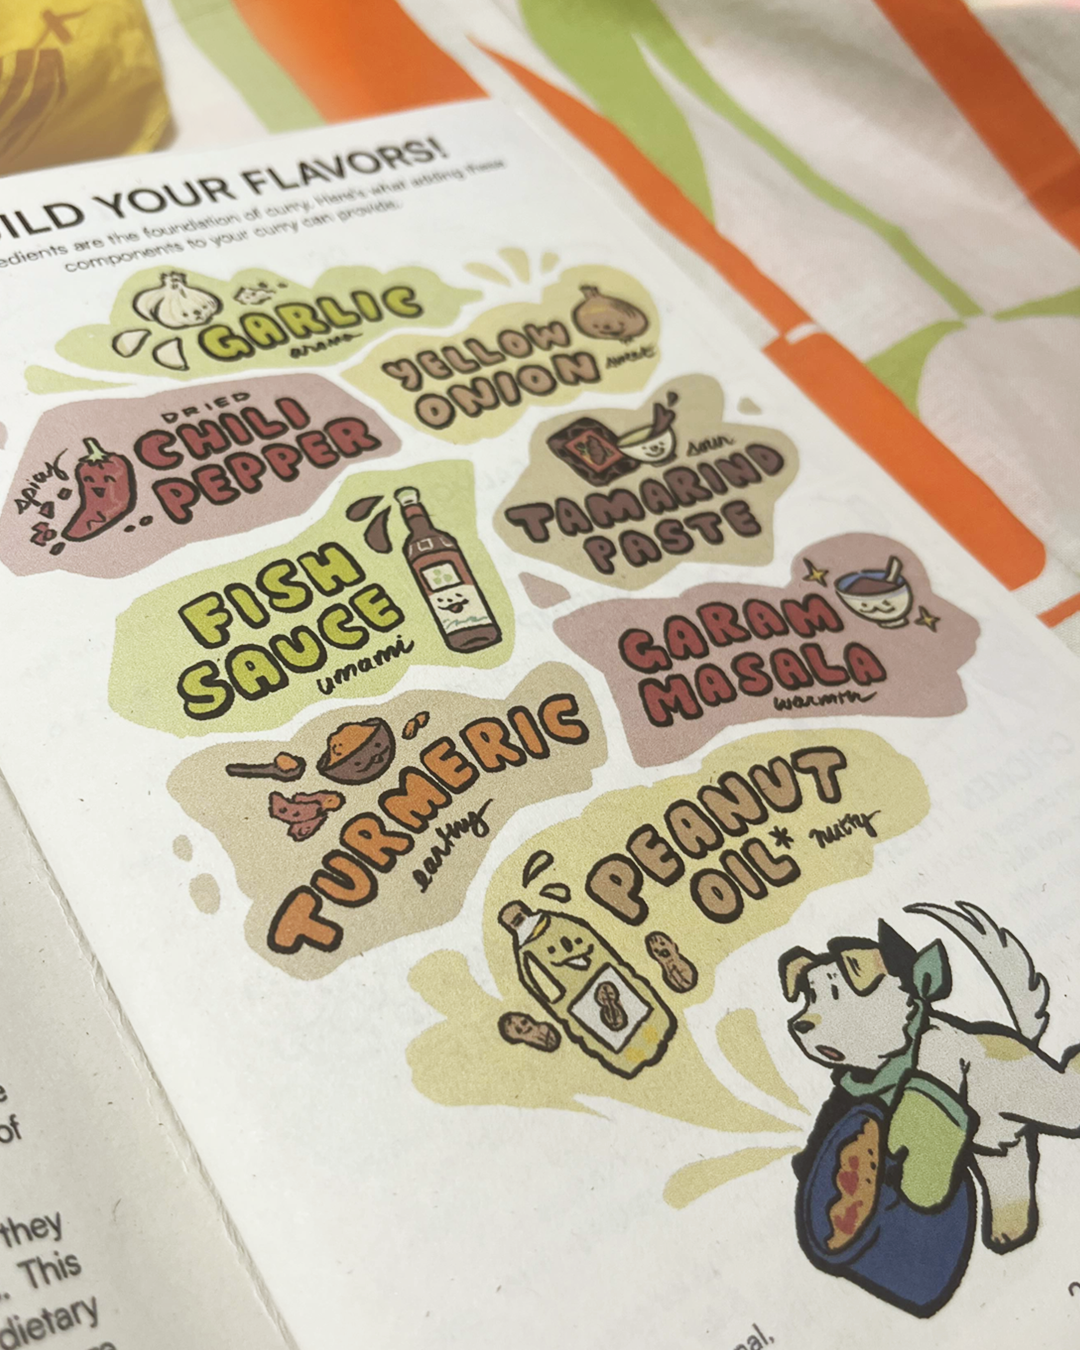 ILD YOUR FLAVORS!
edients are the foundation of curry. Here's what adding these
components to your curry can provide.
GARLIC
aroma
YELLOW
ONION
sweet
DRIED
CHILI
PEPPER
spicy
TAMARIND
PASTE
sour
FISH
SAUCE
umami
GARAM
MASALA
warmth
TURMERIC
earthy
PEANUT
OIL*
nutty
of
they
. This
dietary